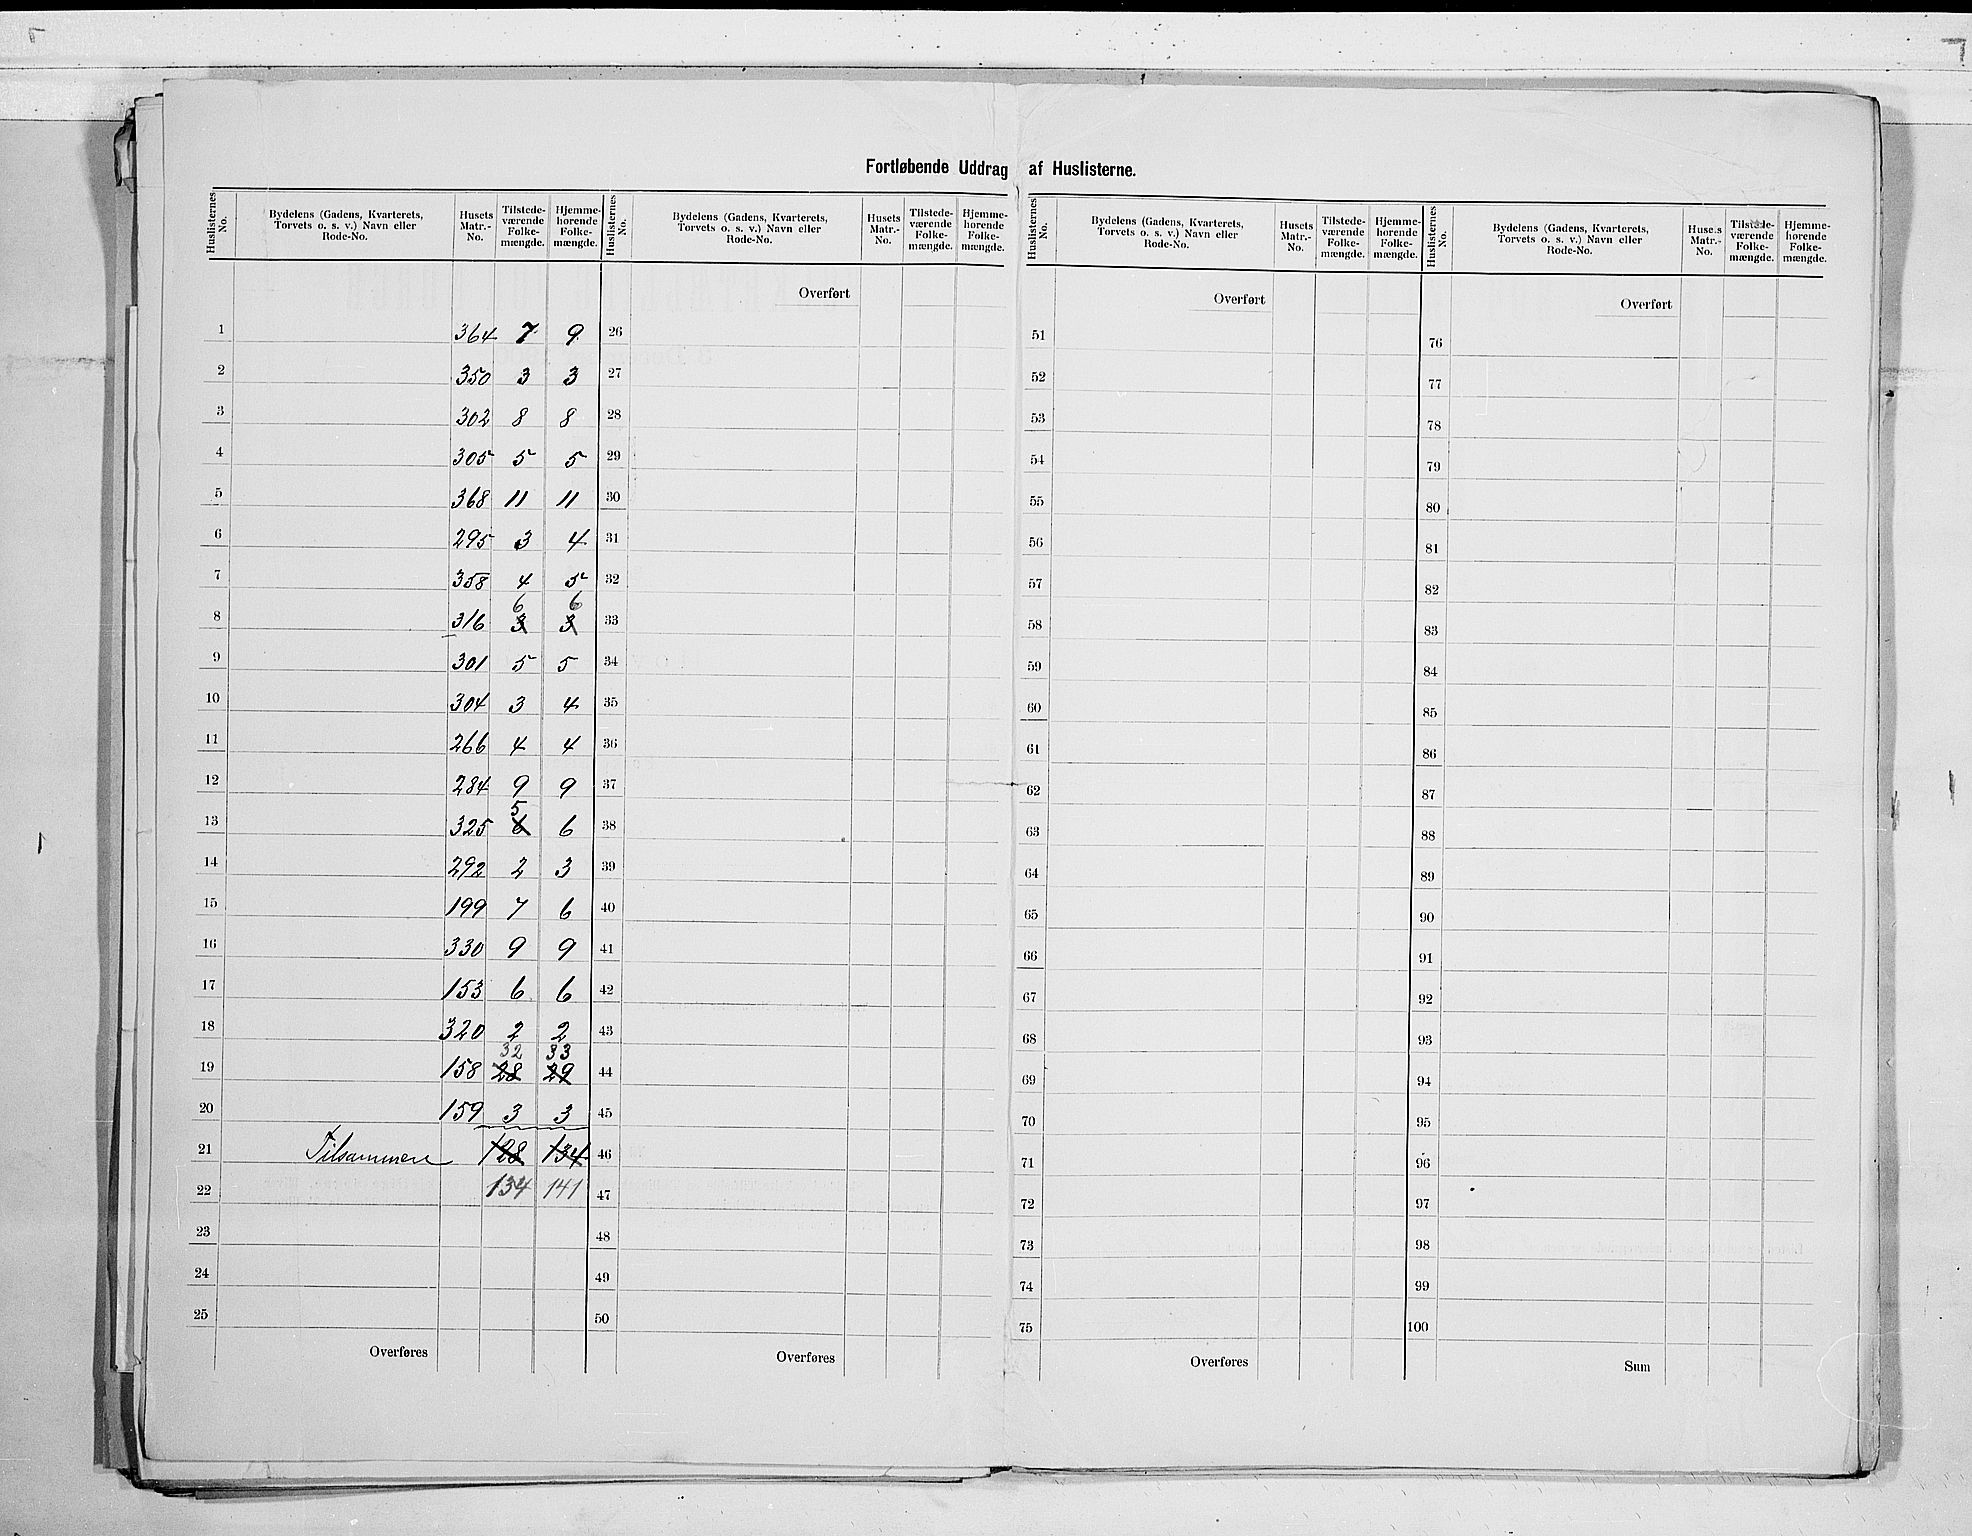 Fortløbende Uddrag af Huslisterne.
Huslisternes No. Bydelens (Gadens, Kvarterets, Torvets o. s. v.) Navn eller Rode-No. Husets Matr.-No. Tilstedeværende Folkemængde. Hjemmehørende Folkemængde.
1 364 7 9
2 350 3 3
3 302 8 8
4 305 5 5
5 368 11 11
6 295 3 4
7 358 4 5
6 6
8 316 3 3
9 301 5 5
10 304 3 4
11 266 4 4
12 284 9 9
5
13 325 6 6
14 292 2 3
15 199 7 6
16 330 9 9
17 153 6 6
18 320 2 2
32 33
19 158 28 29
20 159 3 3
21 Tilsammen 128 134
22 134 141
23
24
25
Overføres
Huslisternes No. Bydelens (Gadens, Kvarterets, Torvets o. s. v.) Navn eller Rode-No. Husets Matr.-No. Tilstedeværende Folkemængde. Hjemmehørende Folkemængde.
Overført
26
27
28
29
30
31
32
33
34
35
36
37
38
39
40
41
42
43
44
45
46
47
48
49
50
Overføres
Huslisternes No. Bydelens (Gadens, Kvarterets, Torvets o. s. v.) Navn eller Rode-No. Husets Matr.-No. Tilstedeværende Folkemængde. Hjemmehørende Folkemængde.
Overført
51
52
53
54
55
56
57
58
59
60
61
62
63
64
65
66
67
68
69
70
71
72
73
74
75
Overføres
Huslisternes No. Bydelens (Gadens, Kvarterets, Torvets o. s. v.) Navn eller Rode-No. Husets Matr.-No. Tilstedeværende Folkemængde. Hjemmehørende Folkemængde.
Overført
76
77
78
79
80
81
82
83
84
85
86
87
88
89
90
91
92
93
94
95
96
97
98
99
100
Sum